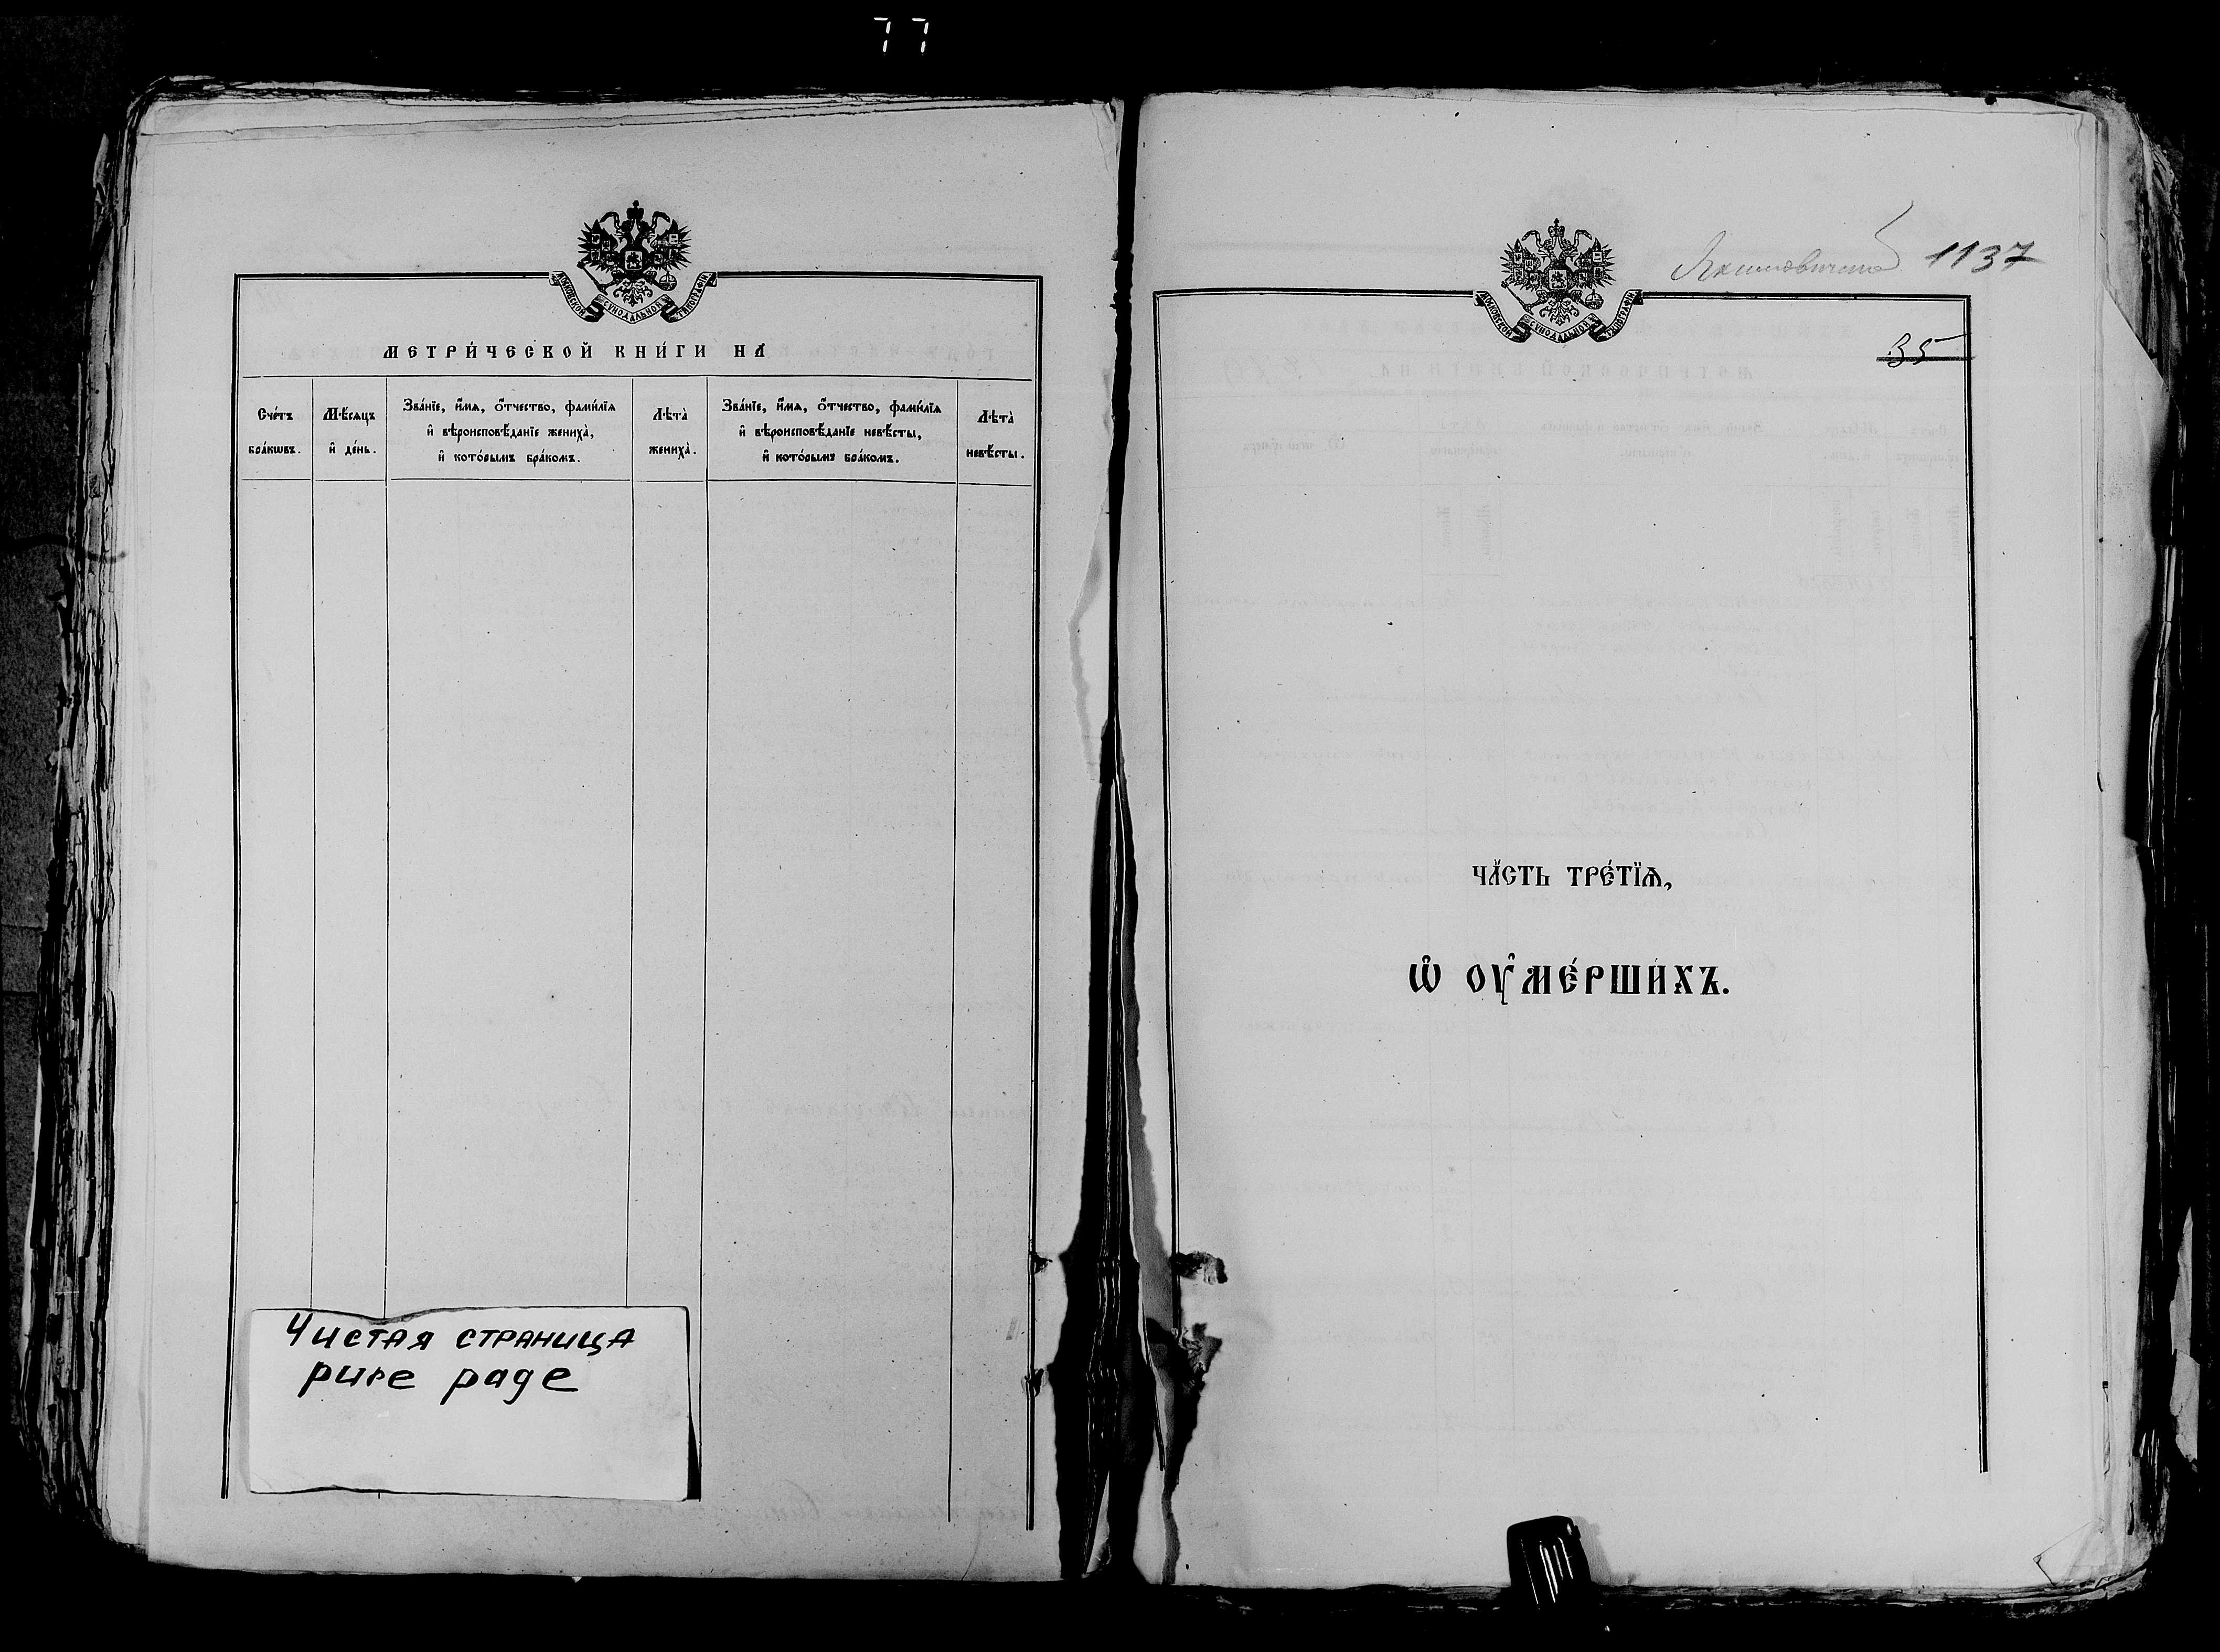 77
МОСКОВСКОЙ СѴНОДАЛЬНОЙ ТИПОГРАФІИ
МЕТРИ́ЧЕСКОЙ КНИ́ГИ НА̀
Сче́тъ бра́кѡвъ.
Мѣ́сѧцъ и҆ де́нь.
Зва́нїе, и҆́мѧ, ѻ҆́тчество, фами́лїѧ
и҆ вѣроисповѣ́данїе жениха̀,
и҆ кото́рымъ бра́комъ.
Лѣта̀ жениха̀.
Зва́нїе, и҆́мѧ, ѻ҆́тчество, фами́лїѧ
и҆ вѣроисповѣ́данїе невѣ́сты,
и҆ кото́рымъ бра́комъ.
Лѣта̀ невѣ́сты.
Чистая страница
pure page
МОСКОВСКОЙ СѴНОДАЛЬНОЙ ТИПОГРАФІИ
1137
35
ЧА́СТЬ ТРЕ́ТЇѦ,
Ѡ҆ ОУ҆МЕ́РШИХЪ.